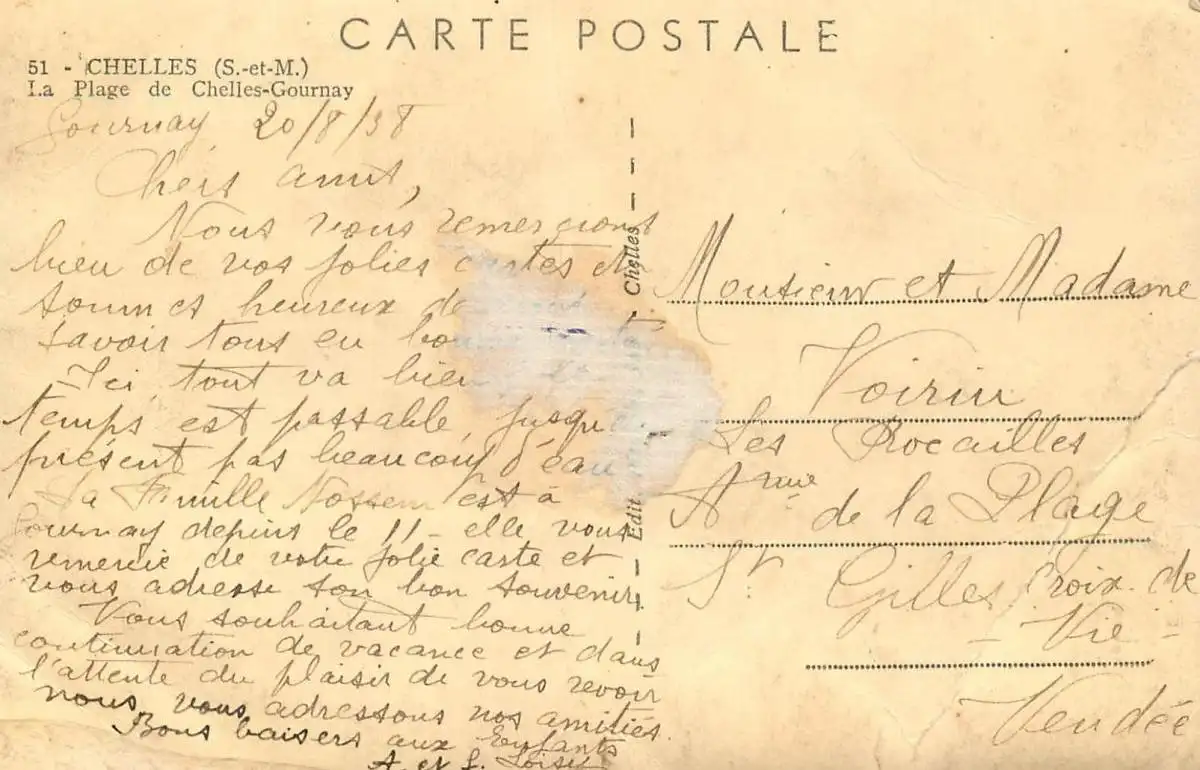 CARTE POSTALE
51 - CHELLES (S.-et-M.)
La Plage de Chelles-Gournay
Gournay 20/8/38
Chers amis,
Nous vous remercions
bien de vos jolies cartes et
sommes heureux de
savoir tous en
Ici tout va bien
temps est passable, jusqu'
présent pas beaucoup d'eau
La Famille est à
Gournay depuis le 11 - elle vous
remercie de votre jolie carte et
vous adresse son bon souvenir.
Vous souhaitant bonne
continuation de vacance et dans
l'attente du plaisir de vous revoir
nous vous adressons nos amitiés.
Bons baisers aux Enfants
A. et
Edit Chelles
Monsieur et Madame
Voirin
Les Rocailles
Anue de la Plage
St Gilles Croix de
- Vie -
Vendée